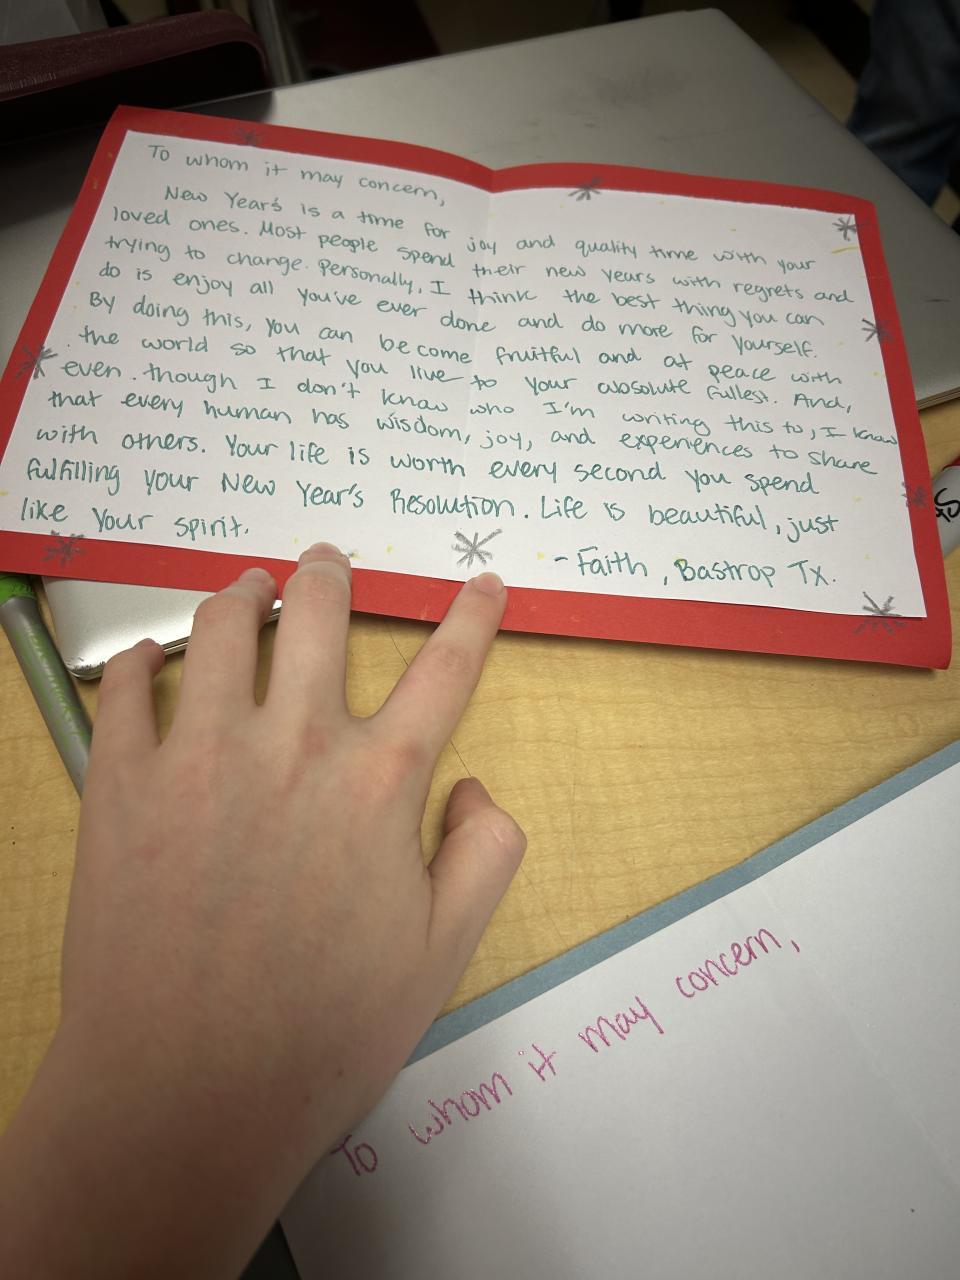 To whom it may concern,
New Year's is a time for joy and quality time with your
loved ones. Most people spend their new years with regrets and
trying to change. Personally, I think the best thing you can
do is enjoy all you've ever done and do more for yourself.
By doing this, you can become fruitful and at peace with
the world so that you live to your absolute fullest. And,
even though I don't know who I'm writing this to, I know
that every human has wisdom, joy, and experiences to share
with others. Your life is worth every second you spend
fulfilling your New Year's Resolution. Life is beautiful, just
like your spirit.
- Faith, Bastrop Tx.
To whom it may concern,